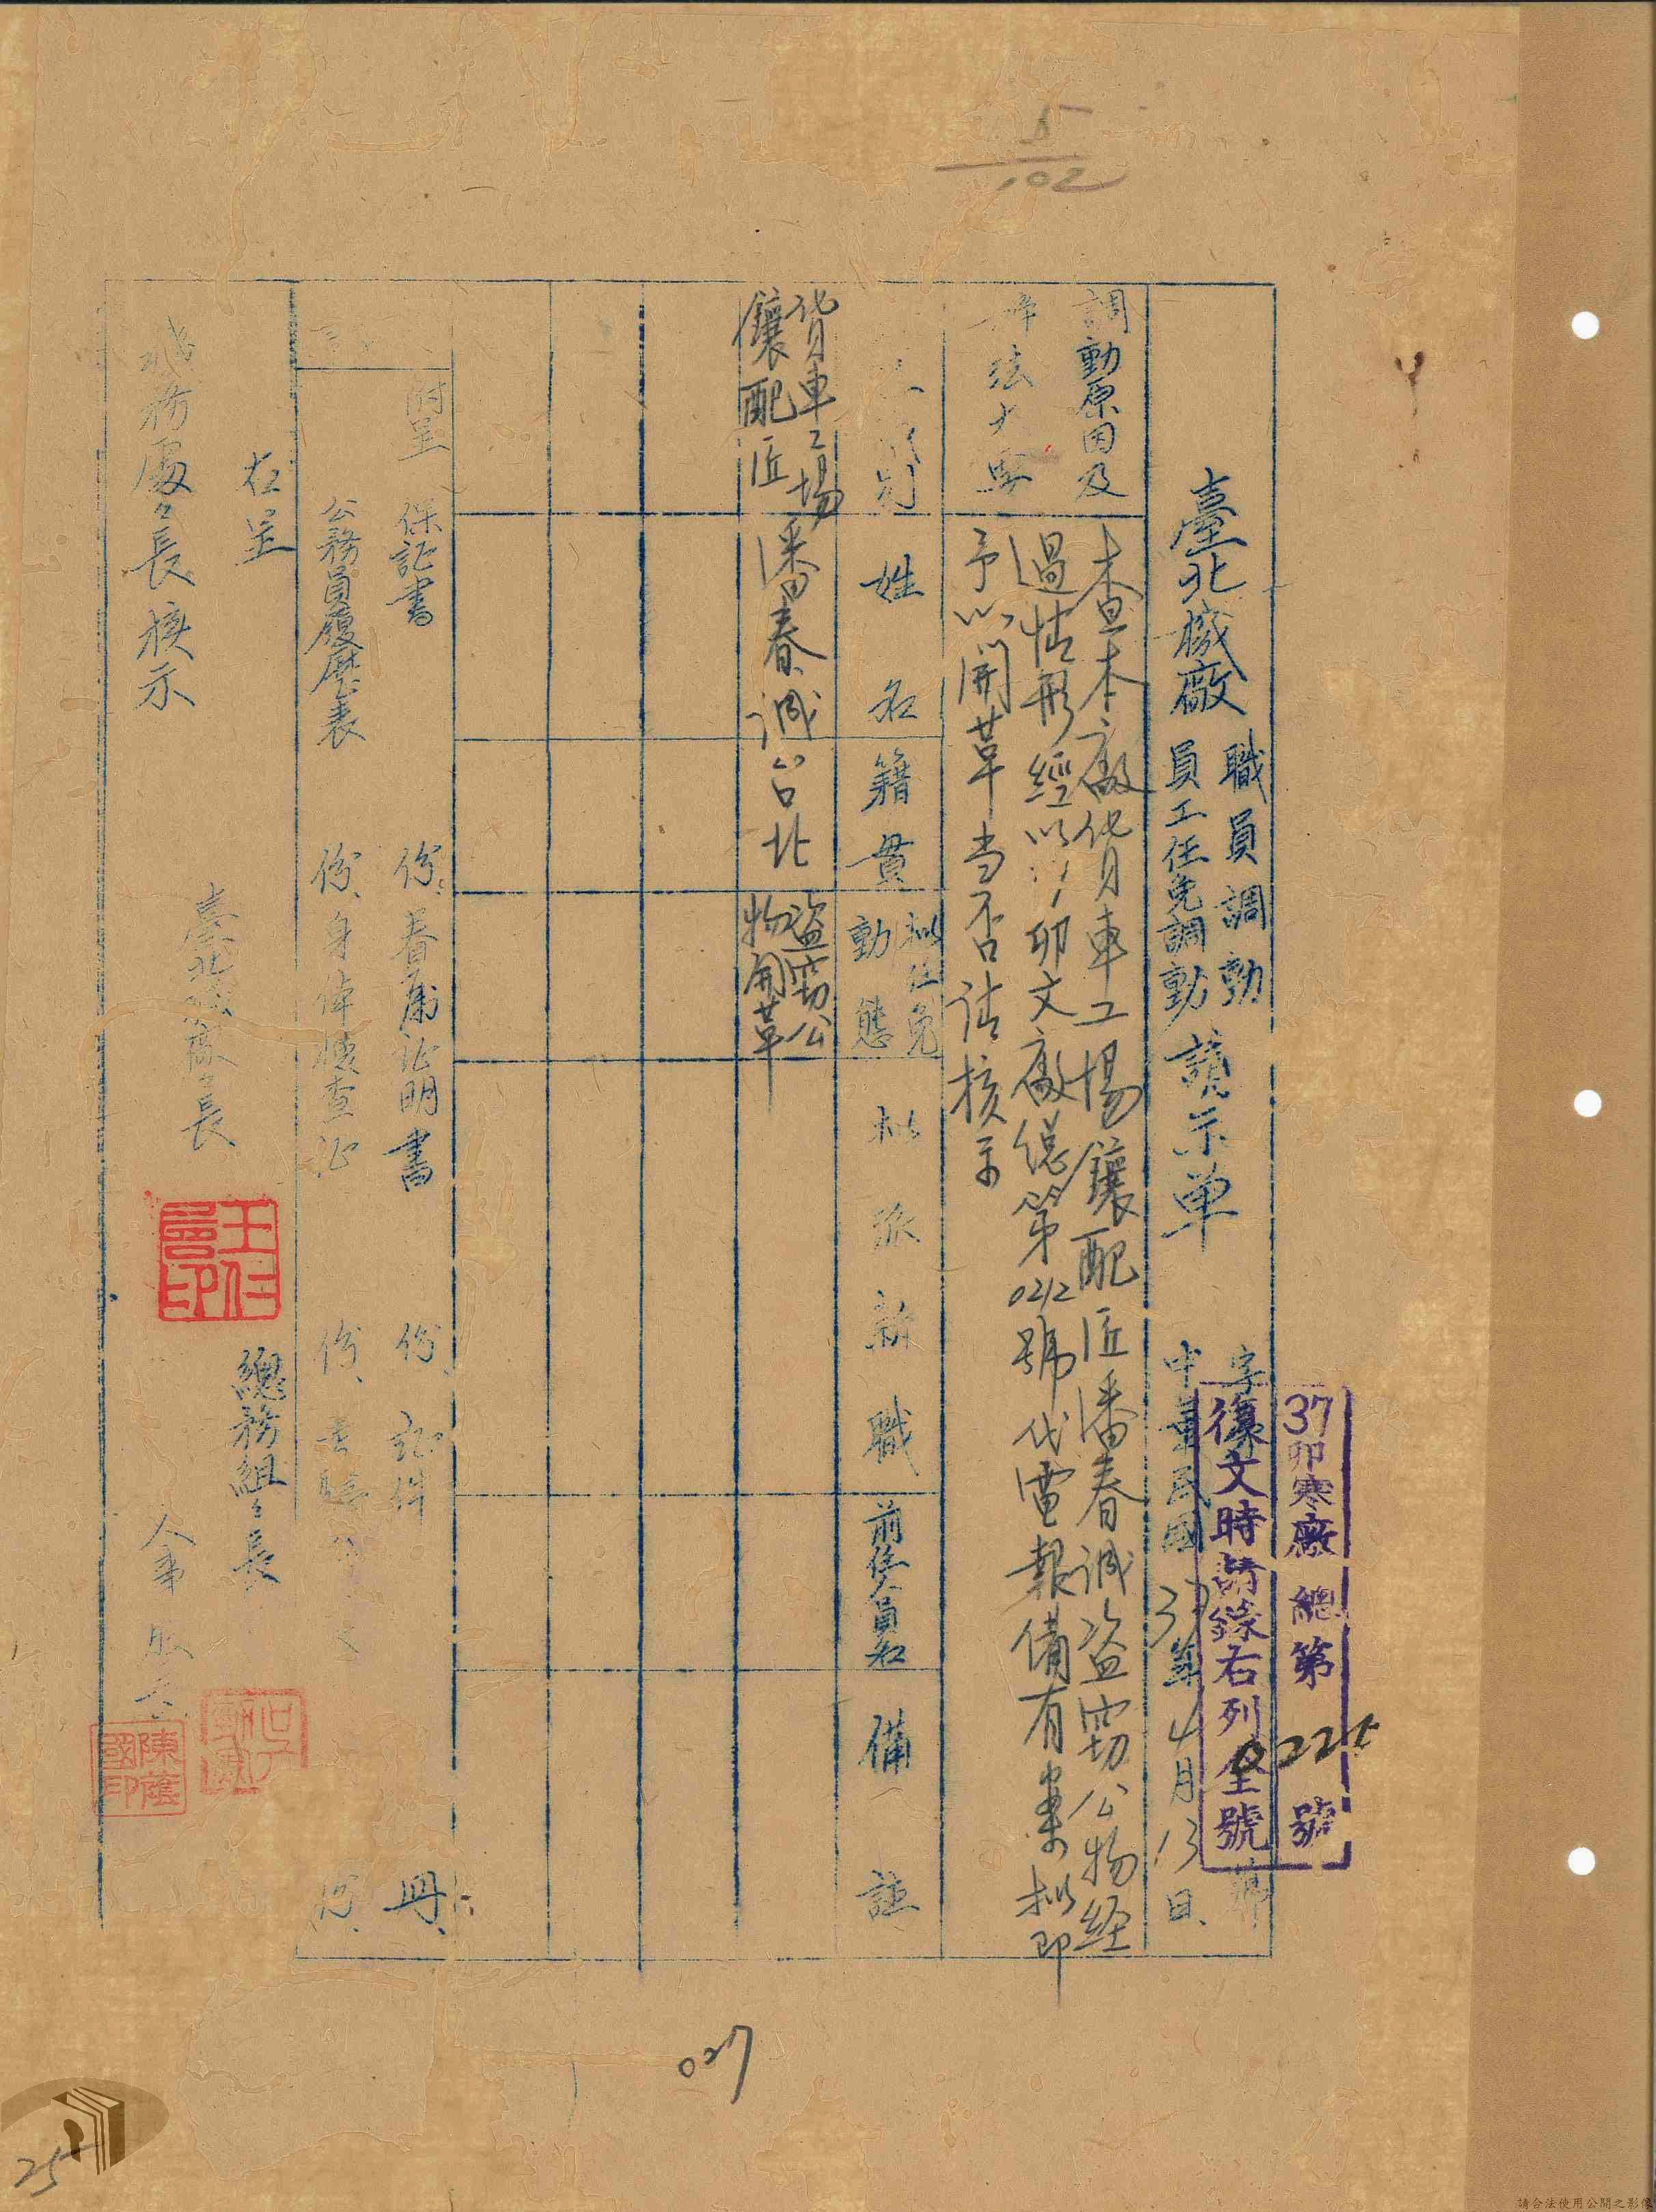 5
102
37卯寒廠總第0224號
復文時請錄右列全號
臺北機廠
職員調動
員工任免調動
請示單
字
號
中華民國37年4月13日
調動原因及
辦法大要
查本廠貨車工場鑲配匠潘春誠盜竊公物經
過情形經以卯文廠總第0212號代電報備有案擬即
予以開革当否請核示
別
姓名
籍貫
擬任免
動態
擬派新職
前任人員名
備註
貨車工場
鑲配匠
潘春誠
台北
盜竊公
物開革
附呈
保証書 份、眷屬証明書 份 証件 冊、
公務員履歷表 份、身体檢查証 份、
右呈
機務處處長核示
臺北機廠廠長
王仁曾印
總務組組長
人事股
陳蔭國印
027
25
請合法使用公開之影像